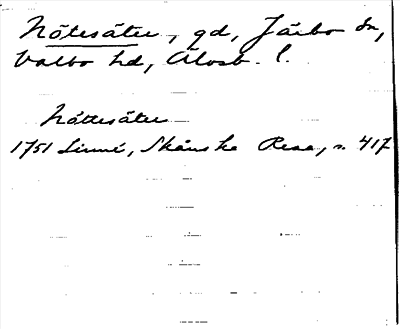 Nötesäter, gd, Järbo sn,
Valbo hd, Älvsb. l.
Nöttesäter
1751 Linné, Skånska Resa, s. 417